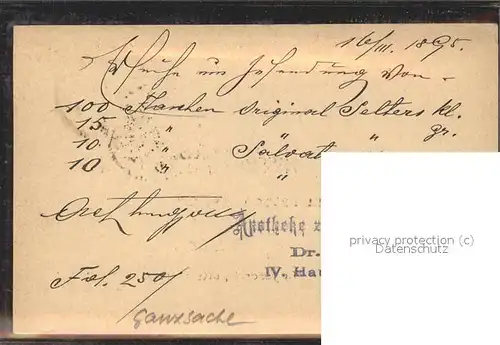 16/III. 1895.
Ersuche um Zusendung von
100 Flaschen Original Selters kl.
15 " " " gr.
10 " Salvat
10 " "
Achtungsvoll
Apotheke z
Dr.
IV. Hau
Fol. 250/
Ganzsache
privacy protection (c)
Datenschutz